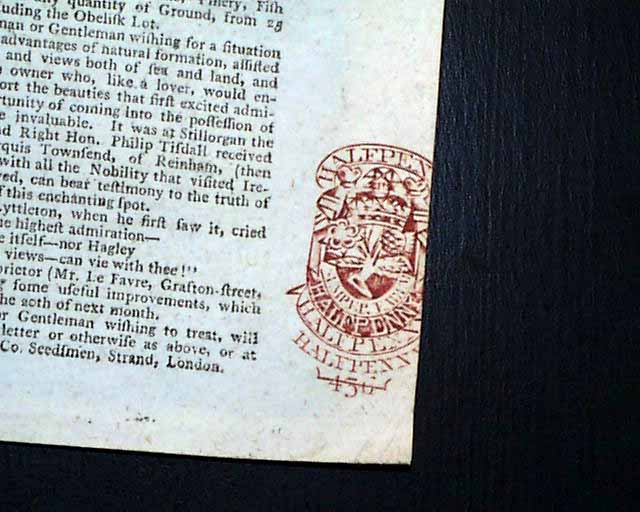 quantity of Ground, from 29
uding the Obeliſk Lot.
man or Gentleman wiſhing for a ſituation
advantages of natural formation, aſſiſted
and views both of ſea and land, and
owner who, like a lover, would en-
ort the beauties that firſt excited admi-
rtunity of coming into the poſſeſſion of
e invaluable. It was at Stillorgan the
nd Right Hon. Philip Tiſdall received
rquis Townſend, of Reinham, (then
with all the Nobility that viſited Ire-
ved, can bear teſtimony to the truth of
f this enchanting ſpot.
yttleton, when he firſt ſaw it, cried
he higheſt admiration—
e itſelf—nor Hagley
views—can vie with thee!"
prietor (Mr. Le Favre, Grafton-ſtreet,
g ſome uſeful improvements, which
the 20th of next month.
or Gentleman wiſhing to treat, will
letter or otherwiſe as above, or at
Co. Seedſmen, Strand, London.
HALFPEN
HALFPENNY
HALFPEN
HALFPENN
456